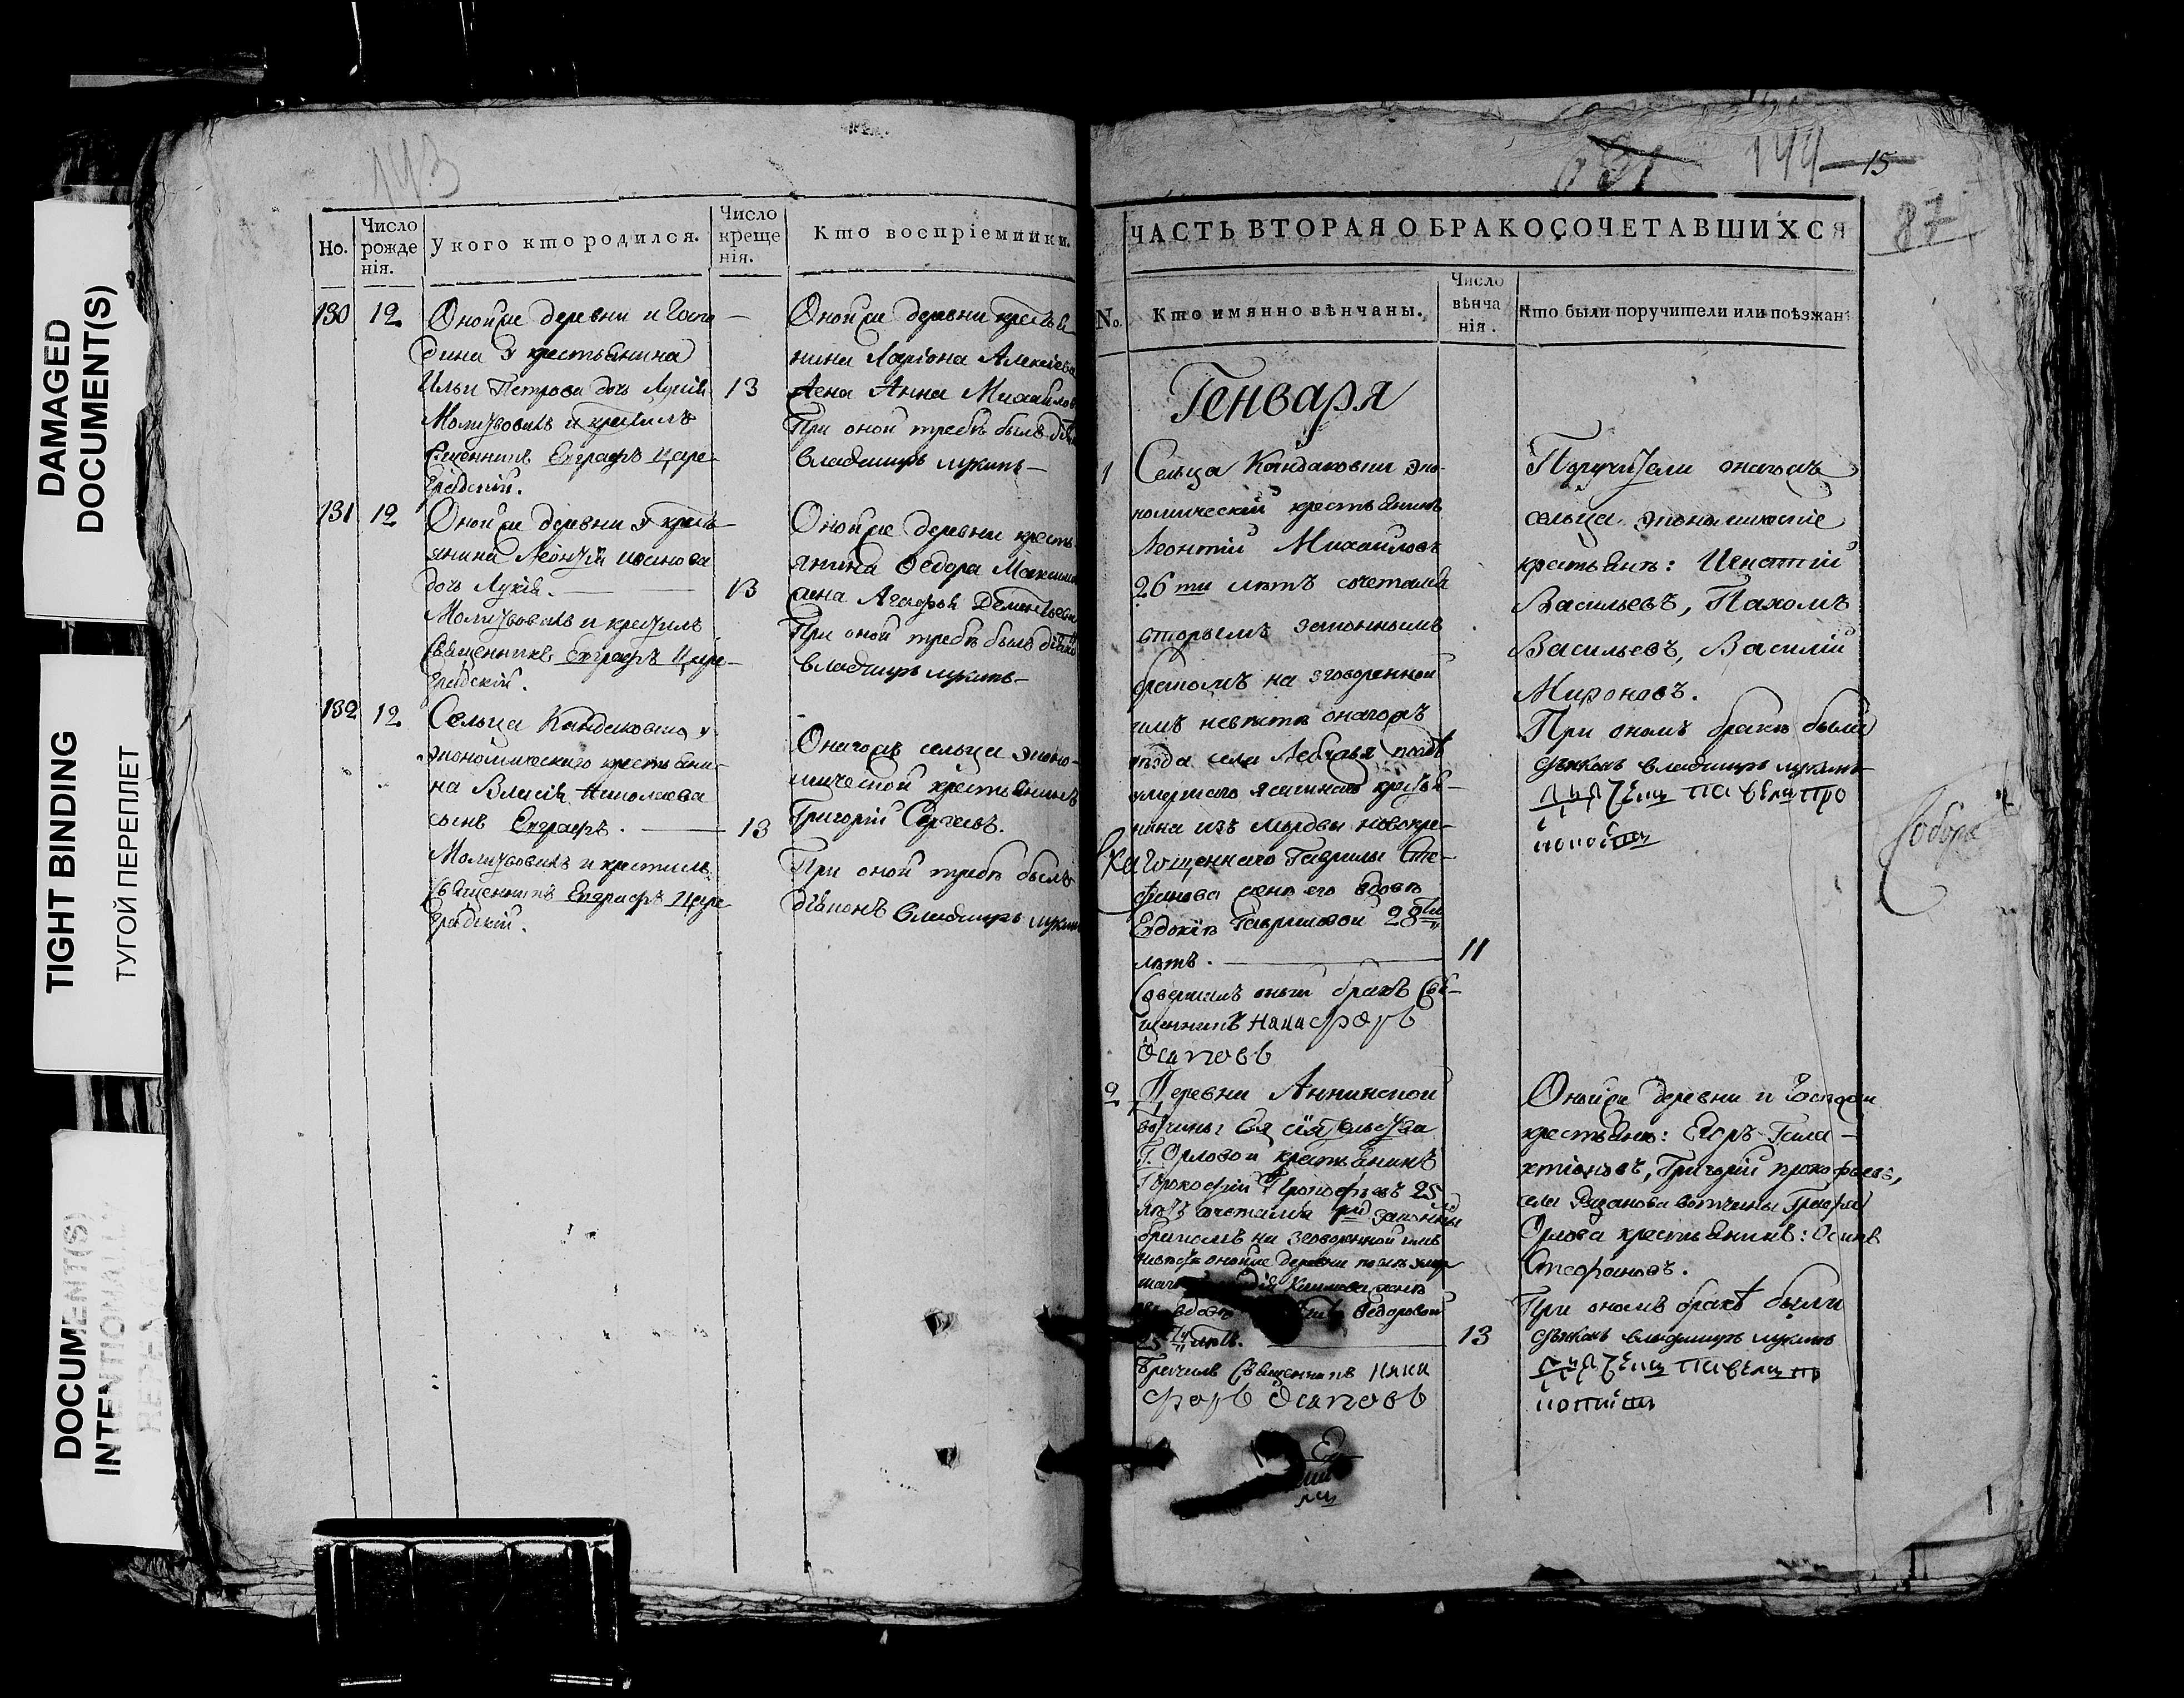 DAMAGED
DOCUMENT(S)
TIGHT BINDING
ТУГОЙ ПЕРЕПЛЕТ
DOCUMENT(S)
143
Но.
Число рожденія.
У кого кто родился.
Число крещенія.
Кто воспріемники.
130 12 Оной же деревни и Госпо
дина у крестьянина
Ильи Петрова дочь Лукія 13
Молитвовалъ и крестилъ
Священникъ Евграфъ Царе-
градскій.
Оной же деревни крестья
нина Ларіона Алексѣева
жена Анна Михайлов
При оной требѣ былъ
Владимиръ Лукинъ
131 12 Оной же деревни у кресть
янина Леонтія Иванова
дочь Лукія. 13
Молитвовалъ и крестилъ
Священникъ Евграфъ Царе-
градскій.
Оной же деревни кресть
янина Федора Максим
жена Агафья Дементьев
При оной требѣ былъ діако
Владимиръ Лукинъ
132 12 Сельца Кандаковки у
экономическаго крестьяни-
на Власія Николаева
сынъ Евграфъ. 13
Молитвовалъ и крестилъ
Священникъ Евграфъ Царе
градскій.
Онагожъ сельца эконо-
мической крестьянинъ
Григорій Сергѣевъ.
При оной требѣ былъ
діаконъ Владимиръ Лукин
144 15
87
ЧАСТЬ ВТОРАЯ О БРАКОСОЧЕТАВШИХСЯ
No.
Кто имянно вѣнчаны.
Число вѣнчанія.
Кто были поручители или поѣзжан
Генваря
1 Сельца Кандаковки эко-
номическій крестьянинъ
Леонтій Михайловъ
26 ти лѣтъ сочетался
вторымъ законнымъ
бракомъ на зговоренной
имъ невѣстѣ онагожъ
села Лебяжья послѣ
умершаго ясашнаго крестья-
нина изъ мордвы новокре-
щеннаго Гаврилы Сте-
фанова женѣ его вдовѣ
Евдокіѣ Гавриловой 28 ми
лѣтъ. 11
Совершилъ оный бракъ Свя-
щенникъ Никифоръ
Осиповъ
Поручители онагожъ
сельца экономическіе
крестьянѣ: Игнатій
Васильевъ, Пахомъ
Васильевъ, Василій
Мироновъ.
При ономъ бракѣ были
діаконъ Владимиръ Лукинъ
2 Деревни Аннинской
вотчины Ея Сіятельства
Г. Орловой крестьянинъ
Прокофій Прокофьевъ 25
лѣтъ сочетался законны
бракомъ на зговоренной имъ
невѣстѣ оной же деревни послѣ умер
Федоровой
лѣтъ. 13
Вѣнчалъ Священникъ Ники
форъ Осиповъ
Оной же деревни и Госпожи
крестьянѣ: Егоръ Гала-
ктіоновъ, Григорій Прокофьевъ,
села Рязанова вотчины Графа
Орлова крестьянинъ: Осипъ
Стефановъ.
При ономъ бракѣ были
діаконъ Владимиръ Лукинъ